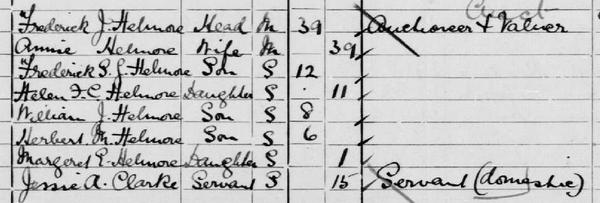 Frederick J. Helmore Head M 39 Auctioneer & Valuer
Annie Helmore Wife M 39
Frederick S. J. Helmore Son S 12
Helen F. C. Helmore Daughter S 11
William J. Helmore Son S 8
Herbert M. Helmore Son S 6
Margeret E. Helmore Daughter S 1
Jessie A. Clarke Servant S 15 Servant (domestic)